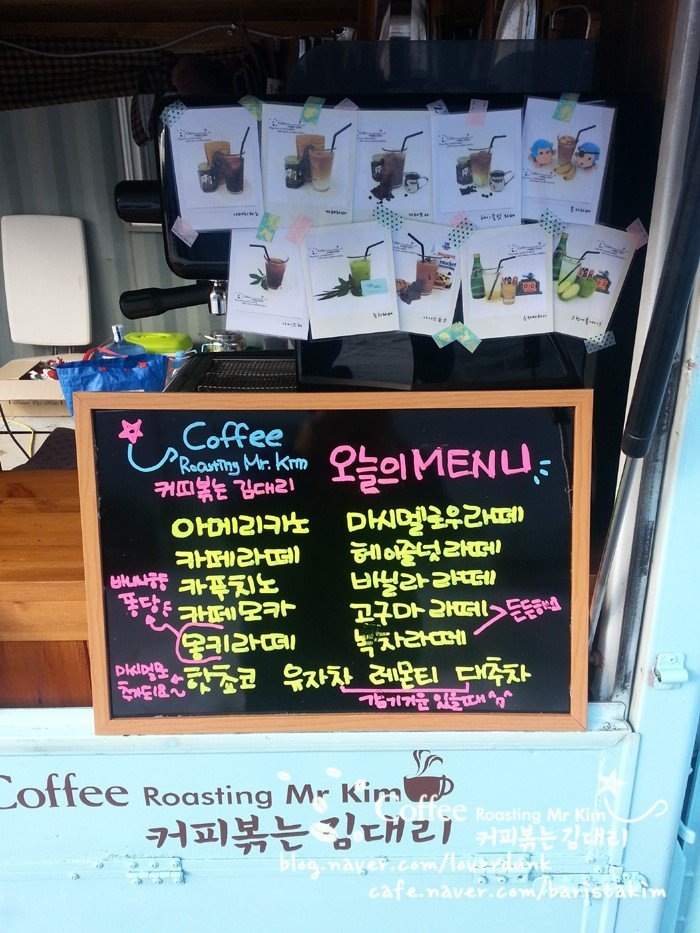 Coffee
Roasting Mr. Kim
커피볶는 김대리
오늘의 MENU
아메리카노
카페라떼
카푸치노
카페모카
몽키라떼
핫쵸코
유자차
레몬티
대추차
마시멜로우라떼
헤이즐넛라떼
바닐라 라떼
고구마 라떼
녹차라떼
바나나향
퐁당
든든하고
마시멜로
추가되요
감기기운 있을때^^
Coffee Roasting Mr Kim
커피볶는 김대리
Coffee Roasting Mr Kim
커피볶는 김대리
blog.naver.com/loverdunk
cafe.naver.com/baristakim